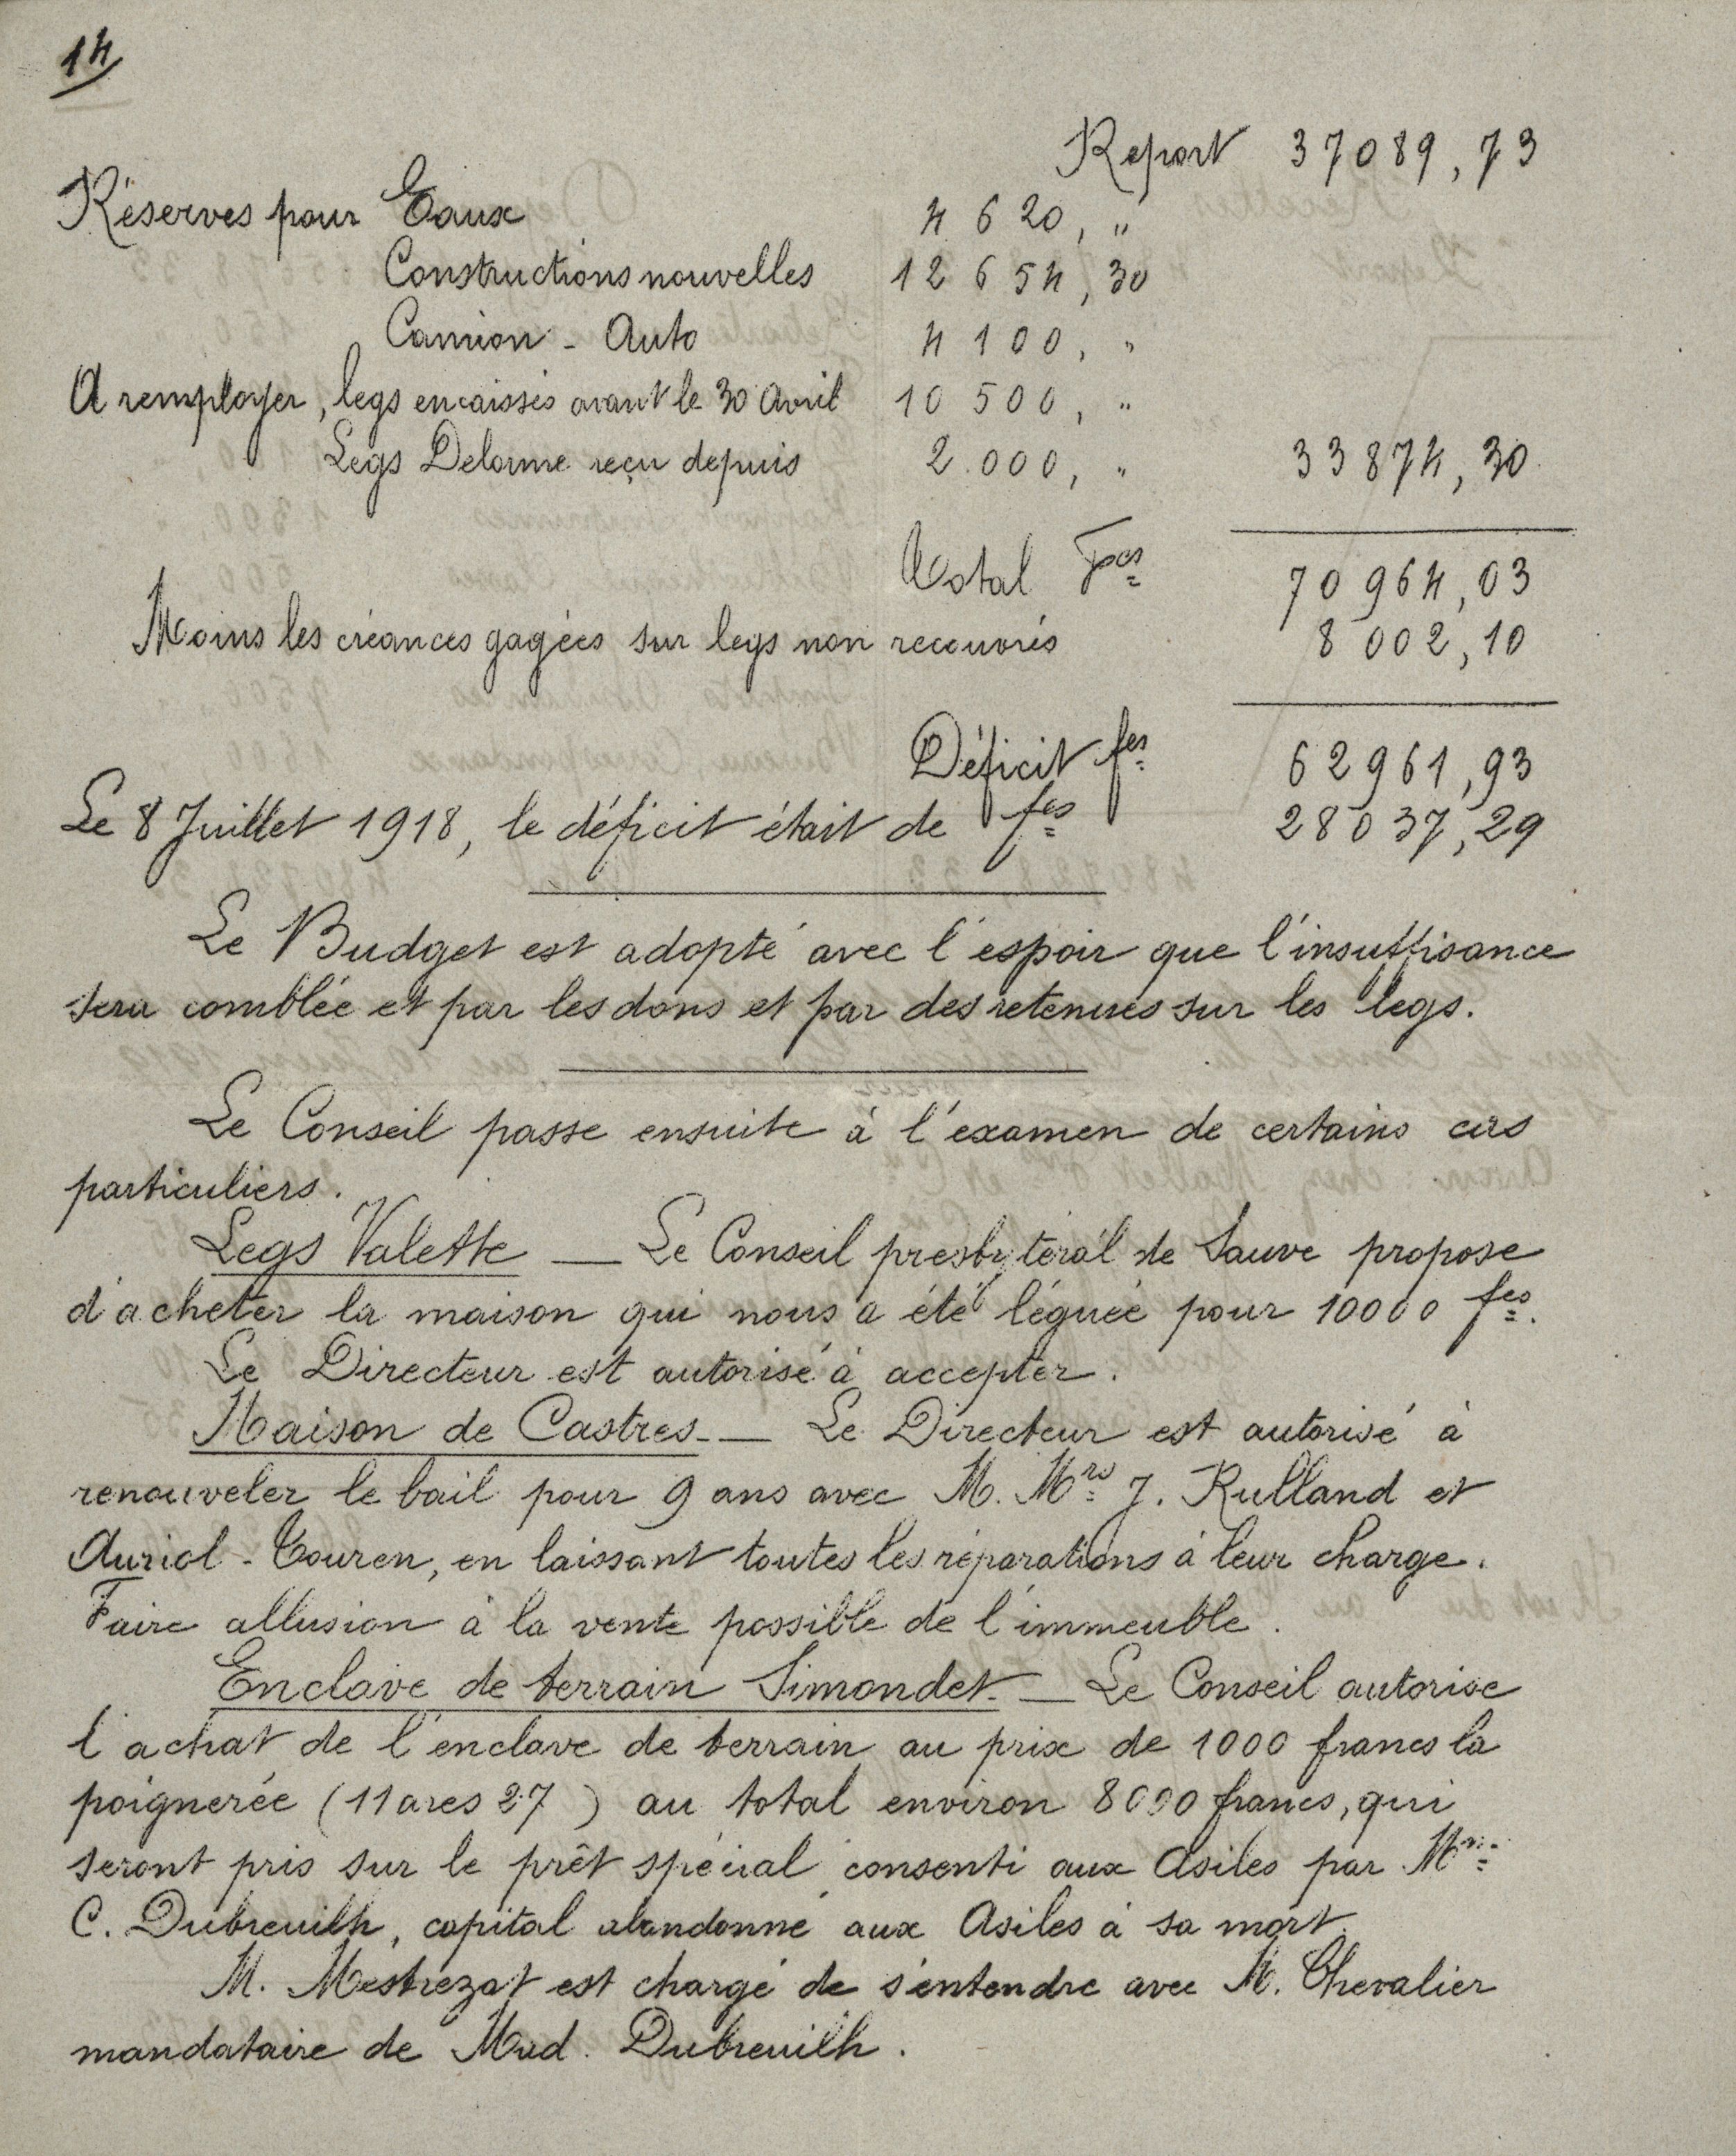 14
Report 37089,73
Réserves pour Eaux 4 620, "
Constructions nouvelles 12 654, 30
Camion - Auto 4 100, "
A remployer, legs encaissés avant le 30 Avril 10 500, "
Legs Delorme reçu depuis 2.000, " 33874, 30
Total Fcs 70 964, 03
Moins les créances gagées sur legs non recouvrés 8 002, 10
Déficit fcs 62961, 93
Le 8 Juillet 1918, le déficit était de fcs 28037, 29
Le Budget est adopté avec l'espoir que l'insuffisance
sera comblée et par les dons et par des retenues sur les legs.
Le Conseil passe ensuite à l'examen de certains cas
particuliers.
Legs Valette — Le Conseil presbytéral de Sauve propose
d'acheter la maison qui nous a été léguée pour 10000 fcs.
Le Directeur est autorisé à accepter.
Maison de Castres — Le Directeur est autorisé à
renouveler le bail pour 9 ans avec M. Mrs J. Rulland et
Auriol - Couren, en laissant toutes les réparations à leur charge.
Faire allusion à la vente possible de l'immeuble.
Enclave de terrain Simondet — Le Conseil autorise
l'achat de l'enclave de terrain au prix de 1000 francs la
poignerée (11 ares 27) au total environ 8000 francs, qui
seront pris sur le prêt spécial consenti aux Asiles par Mme
C. Dubreuilh, capital abandonné aux Asiles à sa mort.
M. Mestrezat est chargé de s'entendre avec M. Chevalier
mandataire de Mad. Dubreuilh.